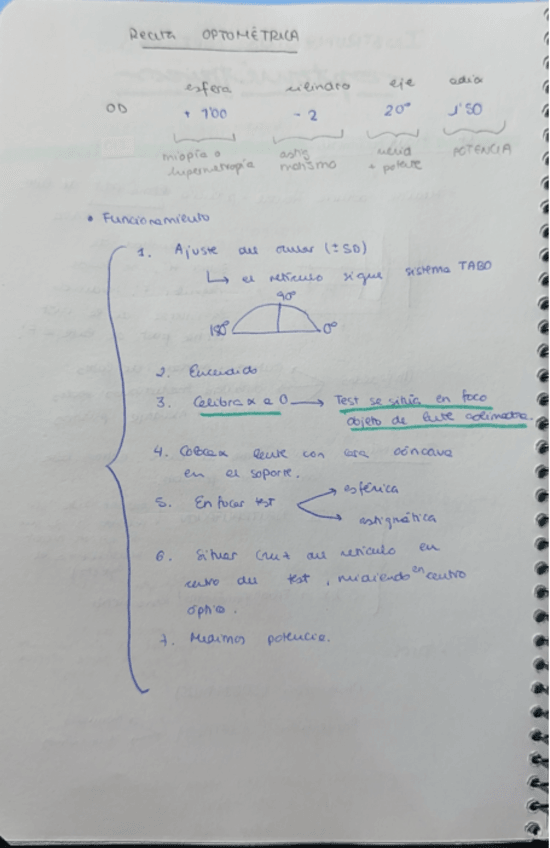 Receta OPTOMÉTRICA
esfera cilindro eje adic
OD + 1'00 - 2 20° 1'50
miopía o hipermetropía astigmatismo POTENCIA
• Funcionamiento
1. Ajuste del ocular (±5D)
↳ el retículo sigue sistema TABO
90°
180° 0°
2. Encendido
3. Calibrar a 0 → Test se sitúa en foco
objeto de lente colimadora.
4. Colocar lente con cara cóncava
en el soporte.
5. Enfocar test
esférica
astigmática
6. Situar cruz del retículo en
centro del test, midiendo en centro
óptico.
7. Medimos potencia.